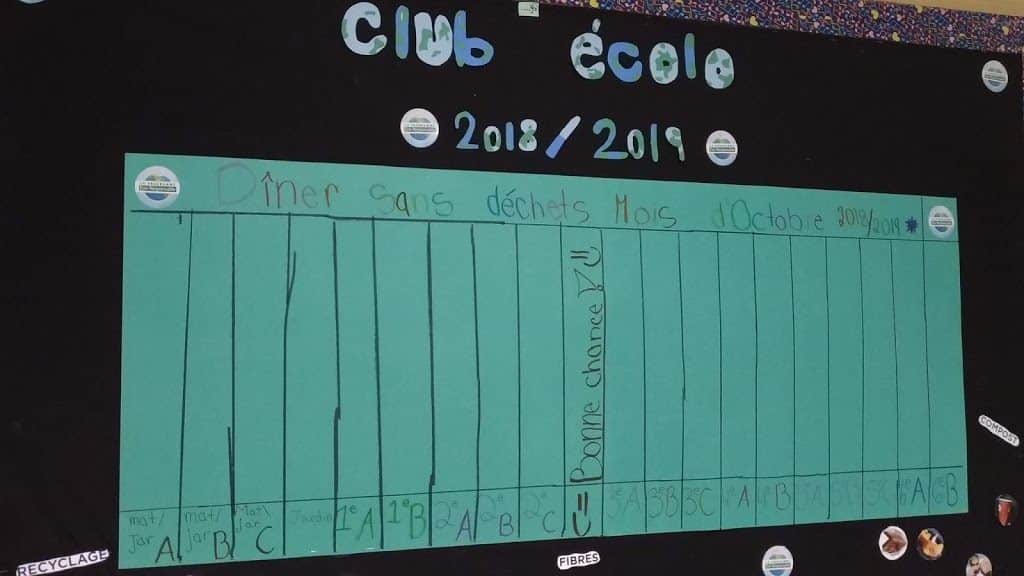 Club écolo
2018/2019
Dîner sans déchets Mois d'Octobre 2018/2019 *
Bonne chance
mat/jar A
mat/jar B
Mat\jar C
Jardin
1e A
1e B
2e A
2e B
2e C
3e A
3e B
3e C
4e A
4e B
5e A
5e B
5e C
6e A
6e B
RECYCLAGE
FIBRES
COMPOST